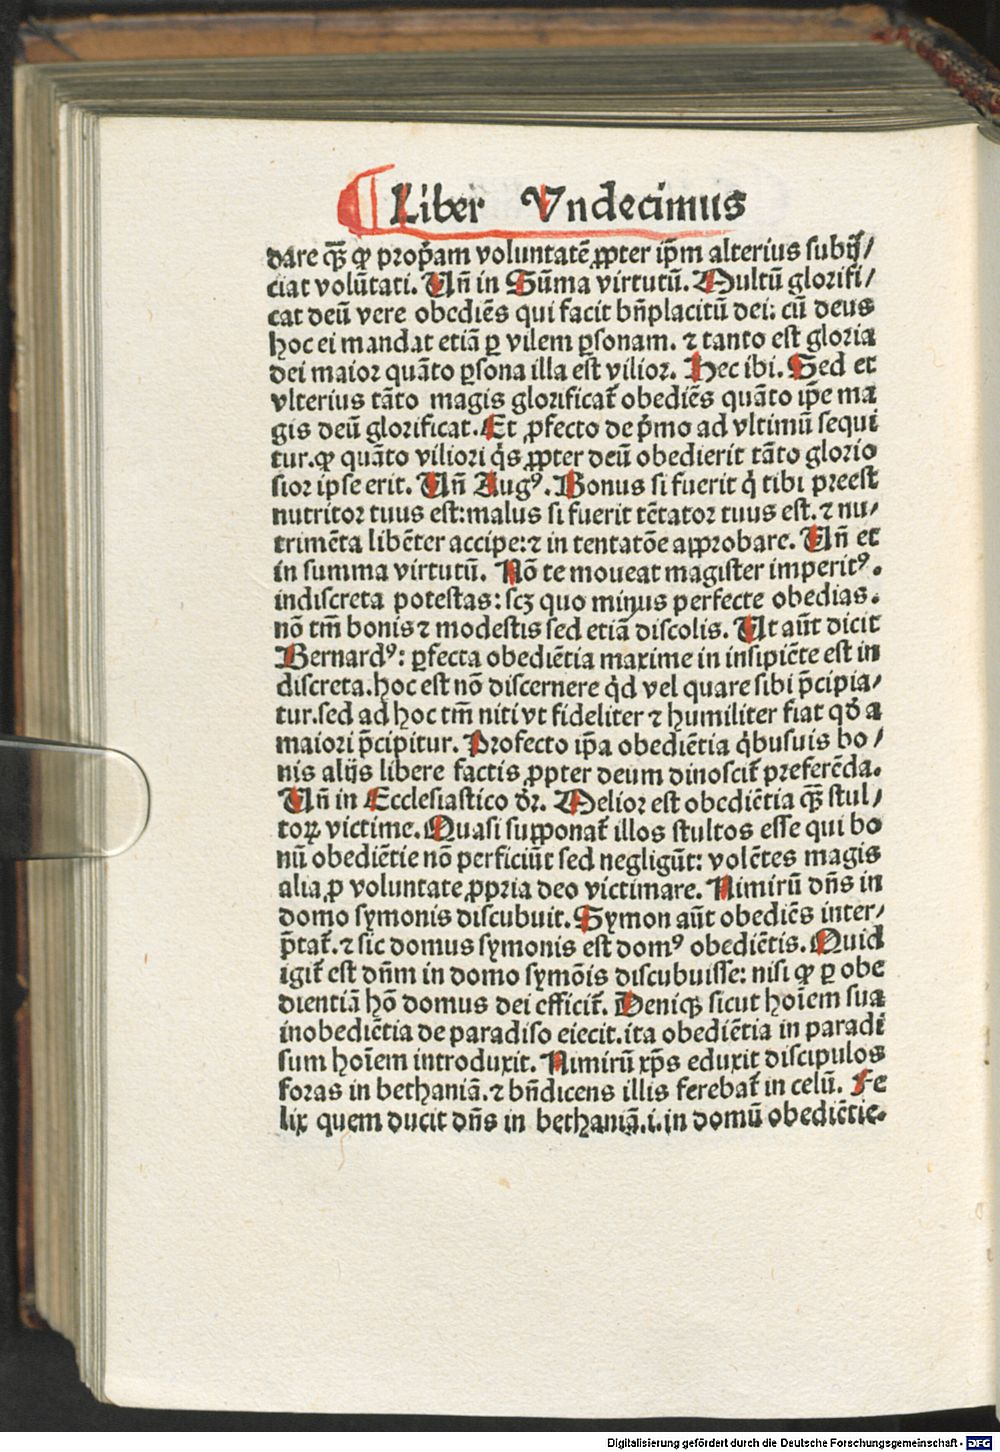 Liber Vndecimus
dare qȝ̃ ꝙ prop̃am voluntatē ꝓpter ip̄m alterius subij/
ciat volūtati. Uñ in Sūma virtutū. Multū glorifi/
cat deū vere obediēs qui facit bñplacitū dei: cū deus
hoc ei mandat etiā ꝑ vilem ꝑsonam. ⁊ tanto est gloria
dei maior quāto ꝑsona illa est vilior. Hec ibi. Sed et
vlterius tāto magis glorificat̃ obediēs quāto ip̄e ma
gis deū glorificat. Et ꝓfecto de p̃mo ad vltimū sequi
tur. ꝙ quāto viliori q̇s ꝓpter deū obedierit tāto glorio
sior ipse erit. Uñ Augꝰ. Bonus si fuerit q̇ tibi preest
nutritor tuus est: malus si fuerit tētator tuus est. ⁊ nu/
trimēta libēter accipe: ⁊ in tentatōe approbare. Uñ et
in summa virtutū. Nō te moueat magister imperitꝰ.
indiscreta potestas: scȝ quo minus perfecte obedias.
nō tm̄ bonis ⁊ modestis sed etiā discolis. Ut aūt dicit
Bernardꝰ: ꝑfecta obediētia maxime in insipiēte est in
discreta. hoc est nō discernere q̇d vel quare sibi p̄cipia/
tur. sed ad hoc tm̄ niti vt fideliter ⁊ humiliter fiat qđ a
maiori p̄cipitur. Profecto ip̄a obediētia q̇busuis bo/
nis alijs libere factis ꝓpter deum dinoscit̃ preferēda.
Uñ in Ecclesiastico dr̃. Melior est obediētia qȝ̃ stul/
toꝝ victime. Quasi supponat̃ illos stultos esse qui bo
nū obediētie nō perficiūt sed negligūt: volētes magis
alia ꝓ voluntate ꝓpria deo victimare. Nimirū dñs in
domo symonis discubuit. Symon aūt obediēs inter/
p̄tat̃. ⁊ sic domus symonis est domꝰ obediētis. Quid
igit̃ est dñm in domo symōis discubuisse: nisi ꝙ ꝑ obe
dientiā hō domus dei efficit̃. Deniqȝ sicut hoīem sua
inobediētia de paradiso eiecit. ita obediētia in paradi
sum hoīem introduxit. Nimirū xp̄s eduxit discipulos
foras in bethaniā. ⁊ bñdicens illis ferebat̃ in celū. Fe
lix quem ducit dñs in bethaniā. i. in domū obediētie.
Digitalisierung gefördert durch die Deutsche Forschungsgemeinschaft - DFG